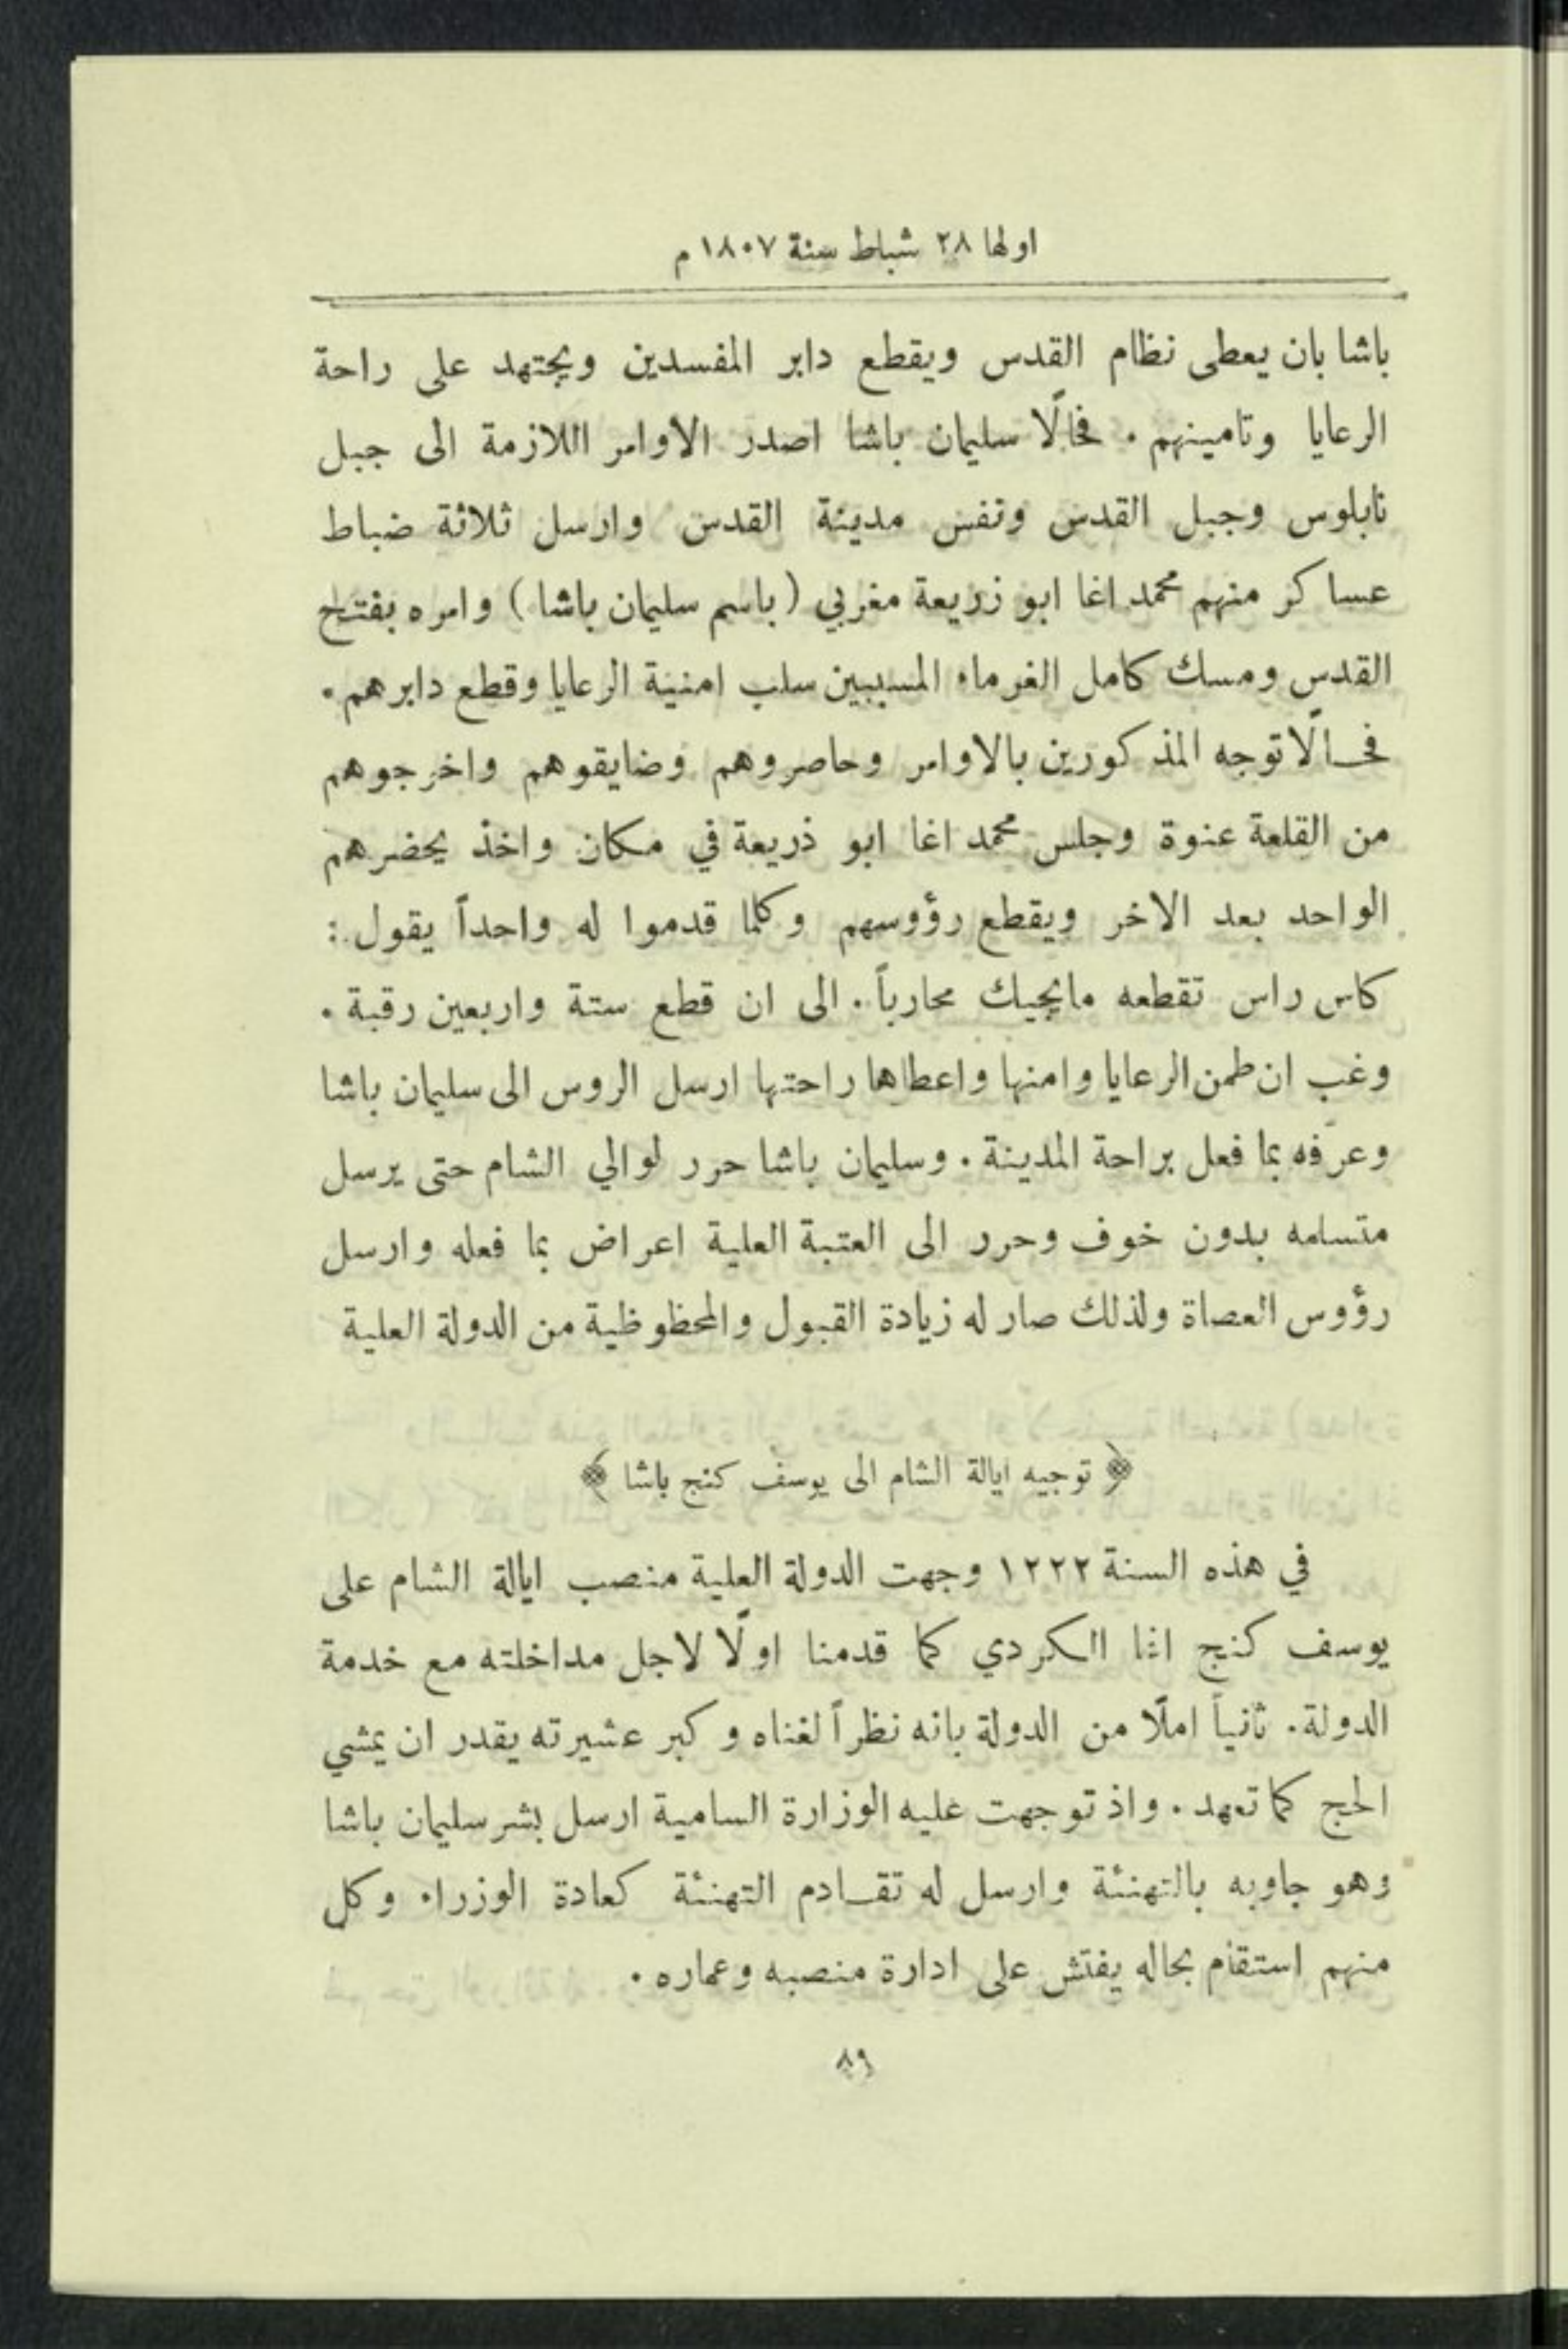 اولها ٢٨ شباط سنة ١٨٠٧ م
باشا بان يعطى نظام القدس ويقطع دابر المفسدين ويجتهد على راحة
الرعايا وتامينهم . فحالًا سليمان باشا اصدر الاوامر اللازمة الى جبل
نابلوس وجبل القدس ونفس مدينة القدس وارسل ثلاثة ضباط
عساكر منهم محمد اغا ابو زريعة مغربي ( باسم سليمان باشا ) وامره بفتح
القدس ومسك كامل الغرماء المسببين سلب امنية الرعايا وقطع دابرهم .
فحالًا توجه المذكورين بالاوامر وحاصروهم وضايقوهم واخرجوهم
من القلعة عنوة وجلس محمد اغا ابو ذريعة في مكان واخذ يحضرهم
الواحد بعد الاخر ويقطع رؤوسهم وكلما قدموا له واحداً يقول :
كاس راس تقطعه مايجيك محارباً . الى ان قطع ستة واربعين رقبة .
وغب ان طمن الرعايا وامنها واعطاها راحتها ارسل الروس الى سليمان باشا
وعرّفه بما فعل براحة المدينة . وسليمان باشا حرر لوالي الشام حتى يرسل
متسلمه بدون خوف وحرر الى العتبة العلية اعراض بما فعله وارسل
رؤوس العصاة ولذلك صار له زيادة القبول والمحظوظية من الدولة العلية
﴿ توجيه ايالة الشام الى يوسف كنج باشا ﴾
في هذه السنة ١٢٢٢ وجهت الدولة العلية منصب ايالة الشام على
يوسف كنج اغا الكردي كما قدمنا اولًا لاجل مداخلته مع خدمة
الدولة . ثانياً املًا من الدولة بانه نظراً لغناه وكبر عشيرته يقدر ان يمشي
الحج كما تعهد . واذ توجهت عليه الوزارة السامية ارسل بشر سليمان باشا
وهو جاوبه بالتهنئة وارسل له تقادم التهنئة كعادة الوزراء وكل
منهم استقام بحاله يفتش على ادارة منصبه وعماره .
٨٩